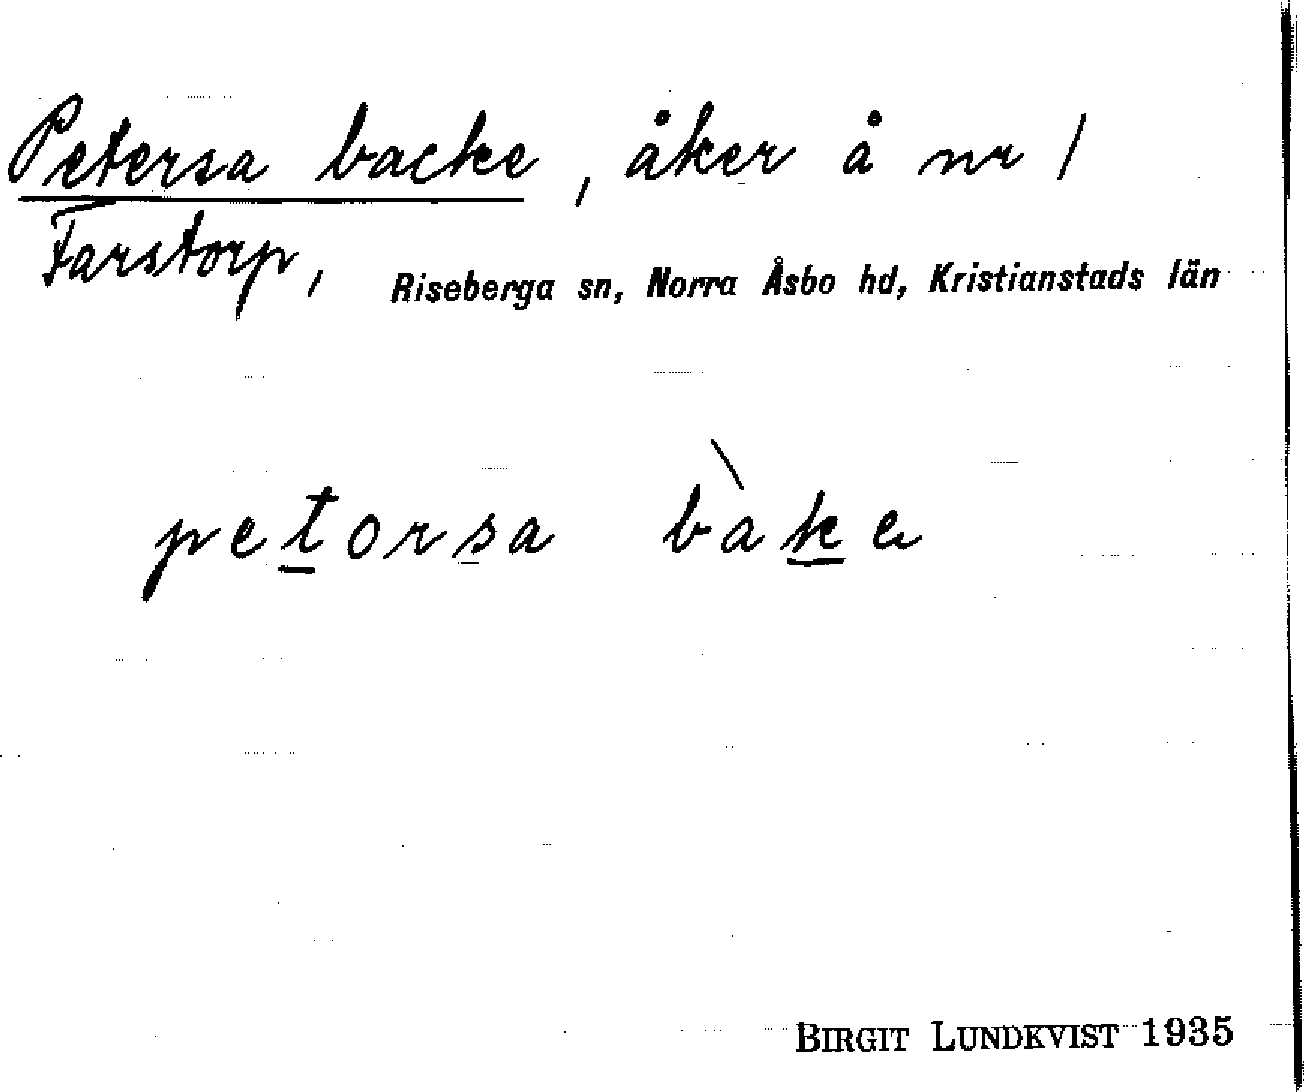 Petersa backe, åker å nr 1
Farstorp, Riseberga sn, Norra Åsbo hd, Kristianstads län
petorsa bàke
BIRGIT LUNDKVIST 1935